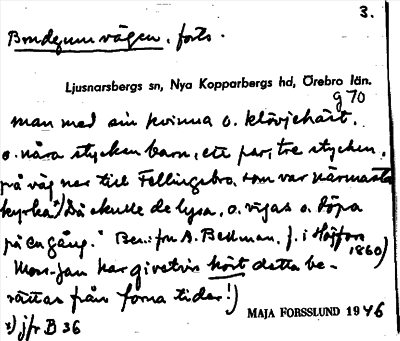 3.
Bondgumvägen. forts.
Ljusnarsbergs sn, Nya Kopparbergs hd, Örebro län.
g 70
man med sin kvinna o. klövjehäst,
o. nåra stycken barn, ett par, tre stycken,
på väg ner till Fellingsbro, som var närmaste
kyrka. Då skulle de lysa, o. vigas o. döpa
på en gång." Ber: fru A. Bedman, f. i Höjfors
1860)
Mor-Jan har givetvis hört detta be-
rättas från forna tider!)
MAJA FORSSLUND 1946
x) jfr B 36